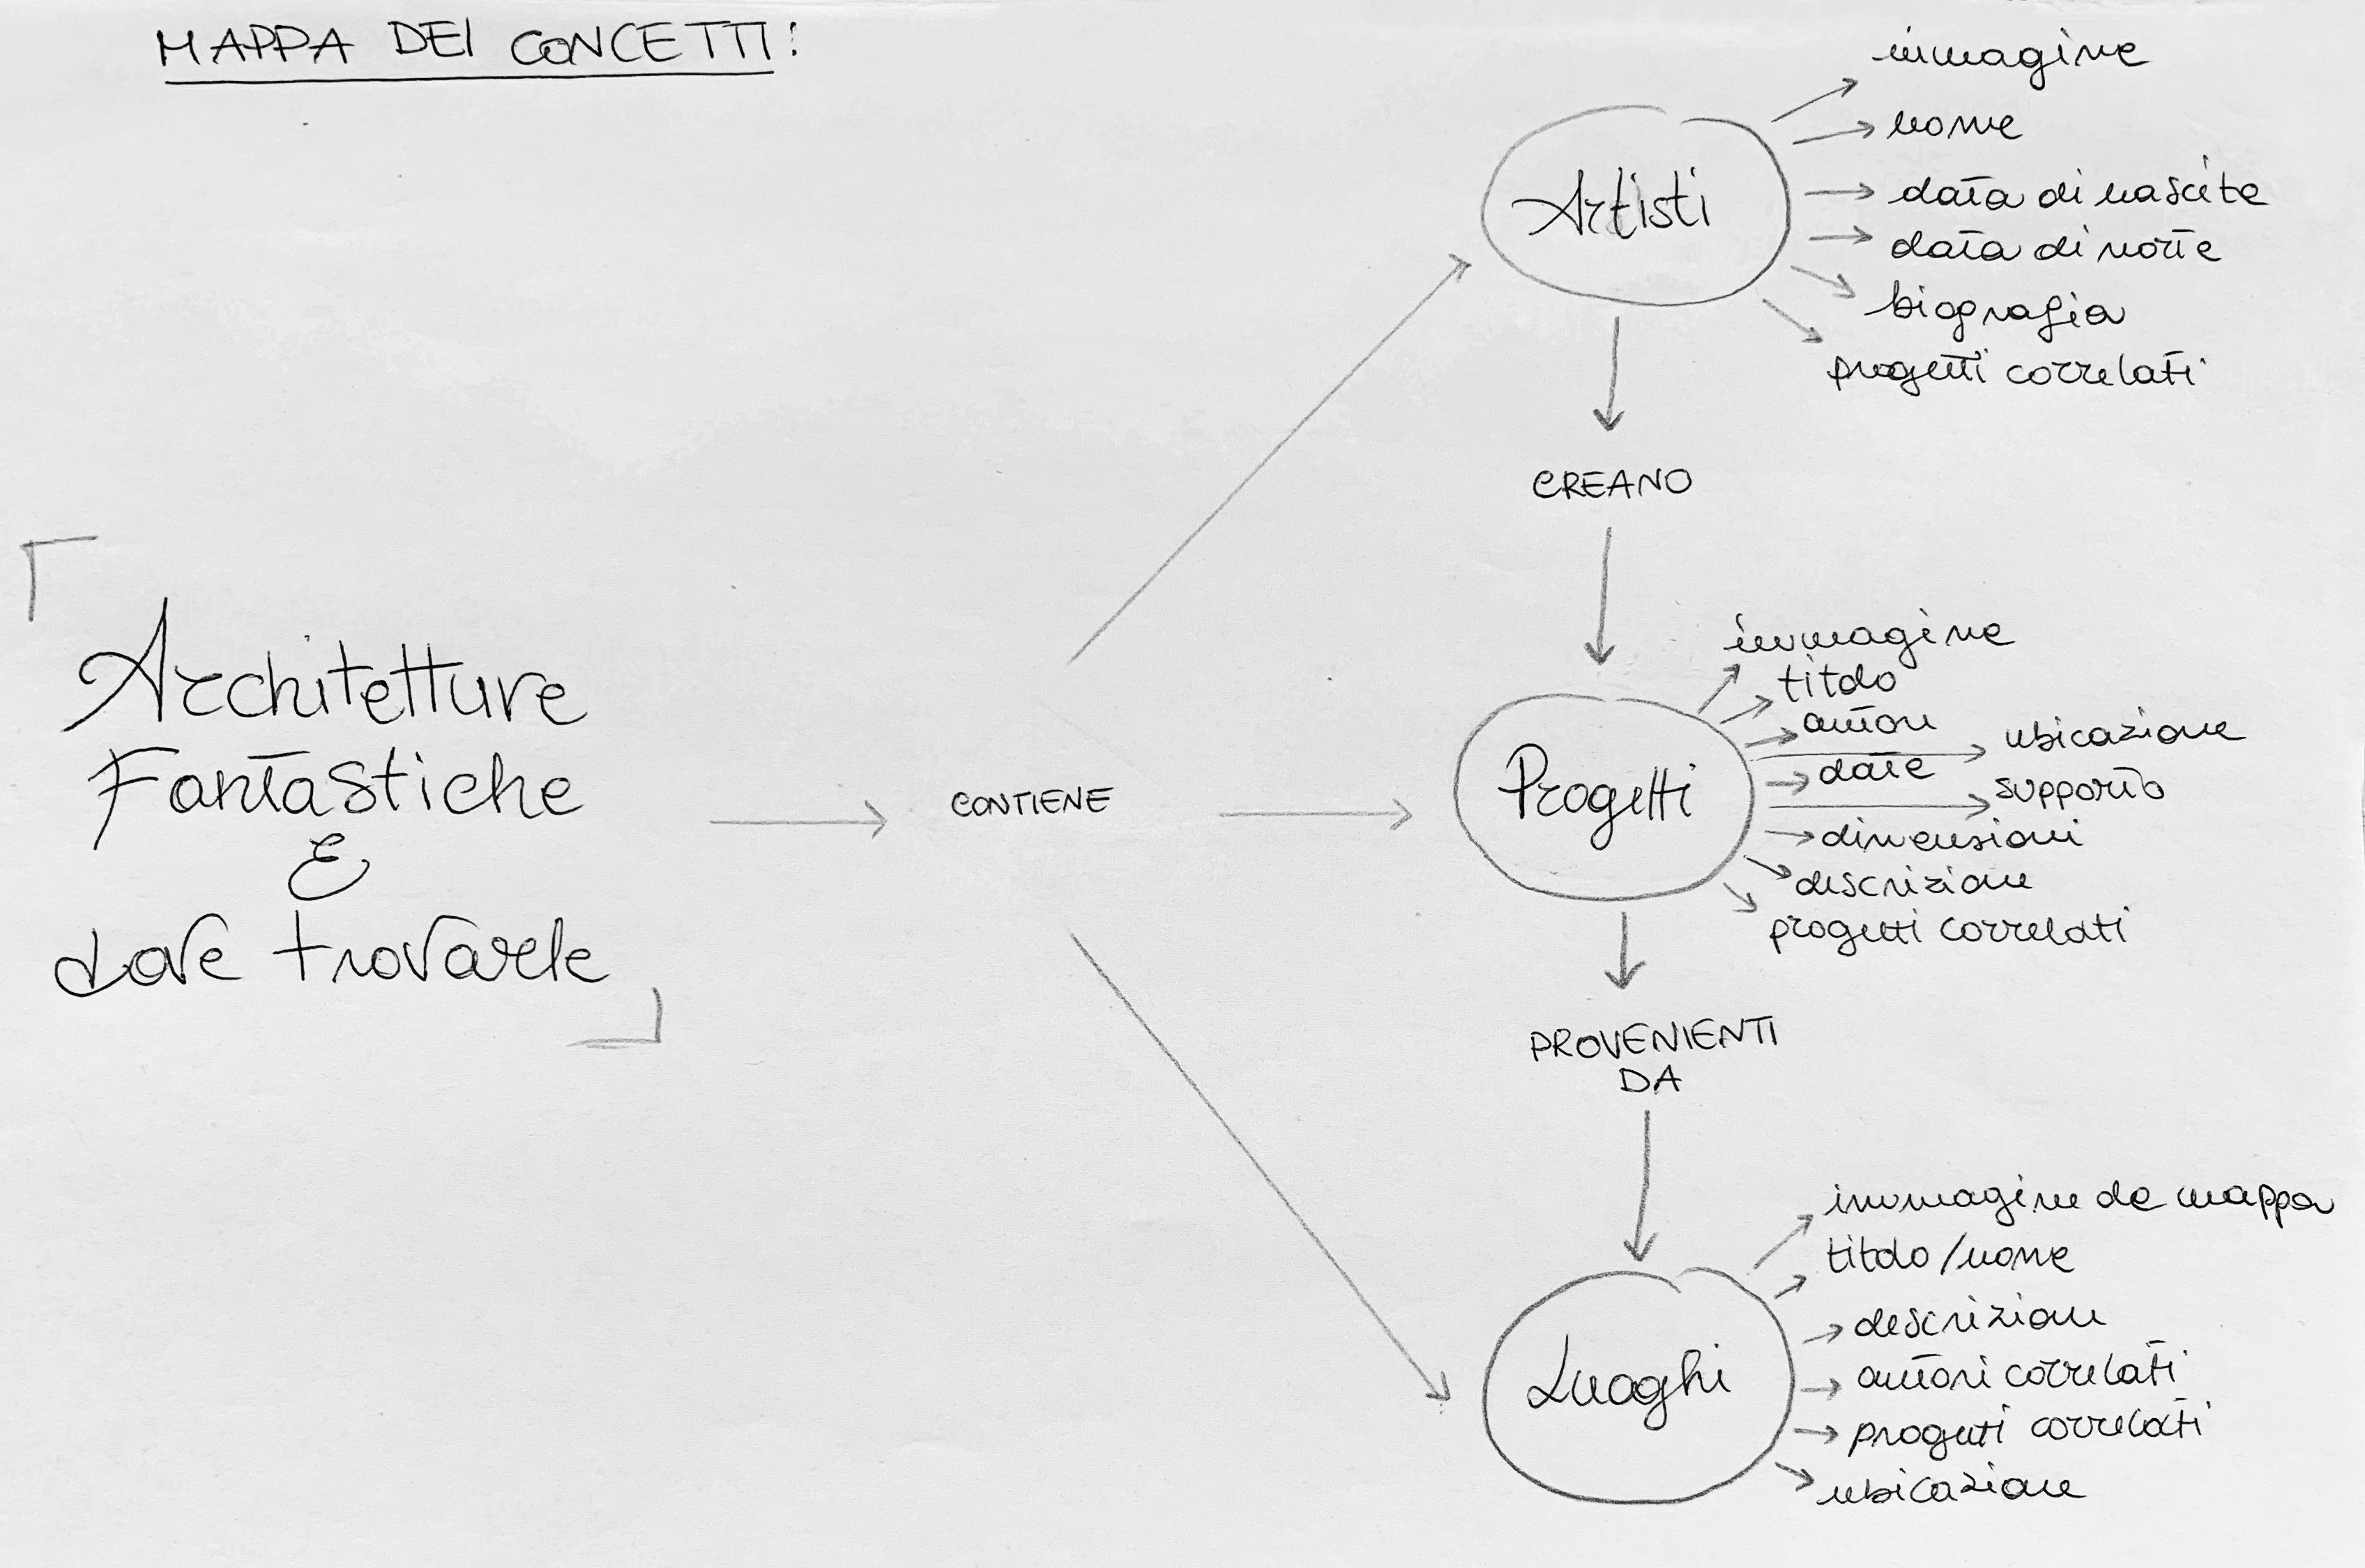 MAPPA DEI CONCETTI:
Architetture
Fantastiche
E
dove trovarle
CONTIENE
Artisti
immagine
nome
data di nascita
data di morte
biografia
progetti correlati
CREANO
Progetti
immagine
titolo
autori
ubicazione
date
supporto
dimensioni
descrizione
progetti correlati
PROVENIENTI
DA
Luoghi
immagine da mappa
titolo/nome
descrizione
autori correlati
progetti correlati
ubicazione